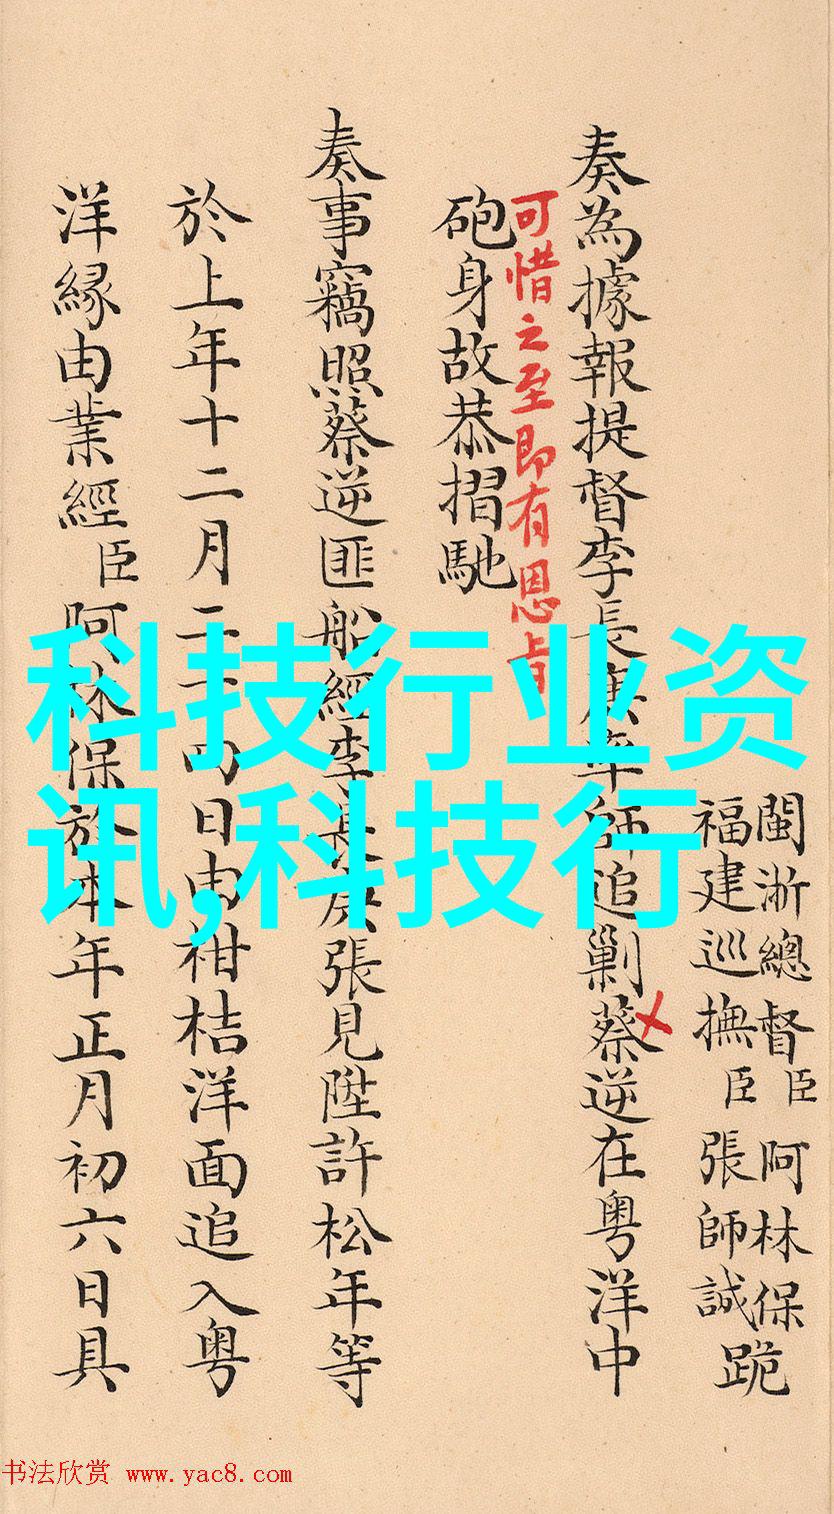 閩浙總督臣阿林保跪
福建巡撫臣張師誠
奏為據報提督李長庚率師追剿蔡逆在粤洋中
可惜之至即有恩㫖
砲身故恭摺馳
奏事竊照蔡逆匪船經李長庚張見陞許松年等
於上年十二月二十四日由柑桔洋面追入粤
洋縁由業經臣阿林保於本年正月初六日具
科技行业资
讯,科技行
书法欣赏 www.yac8.com